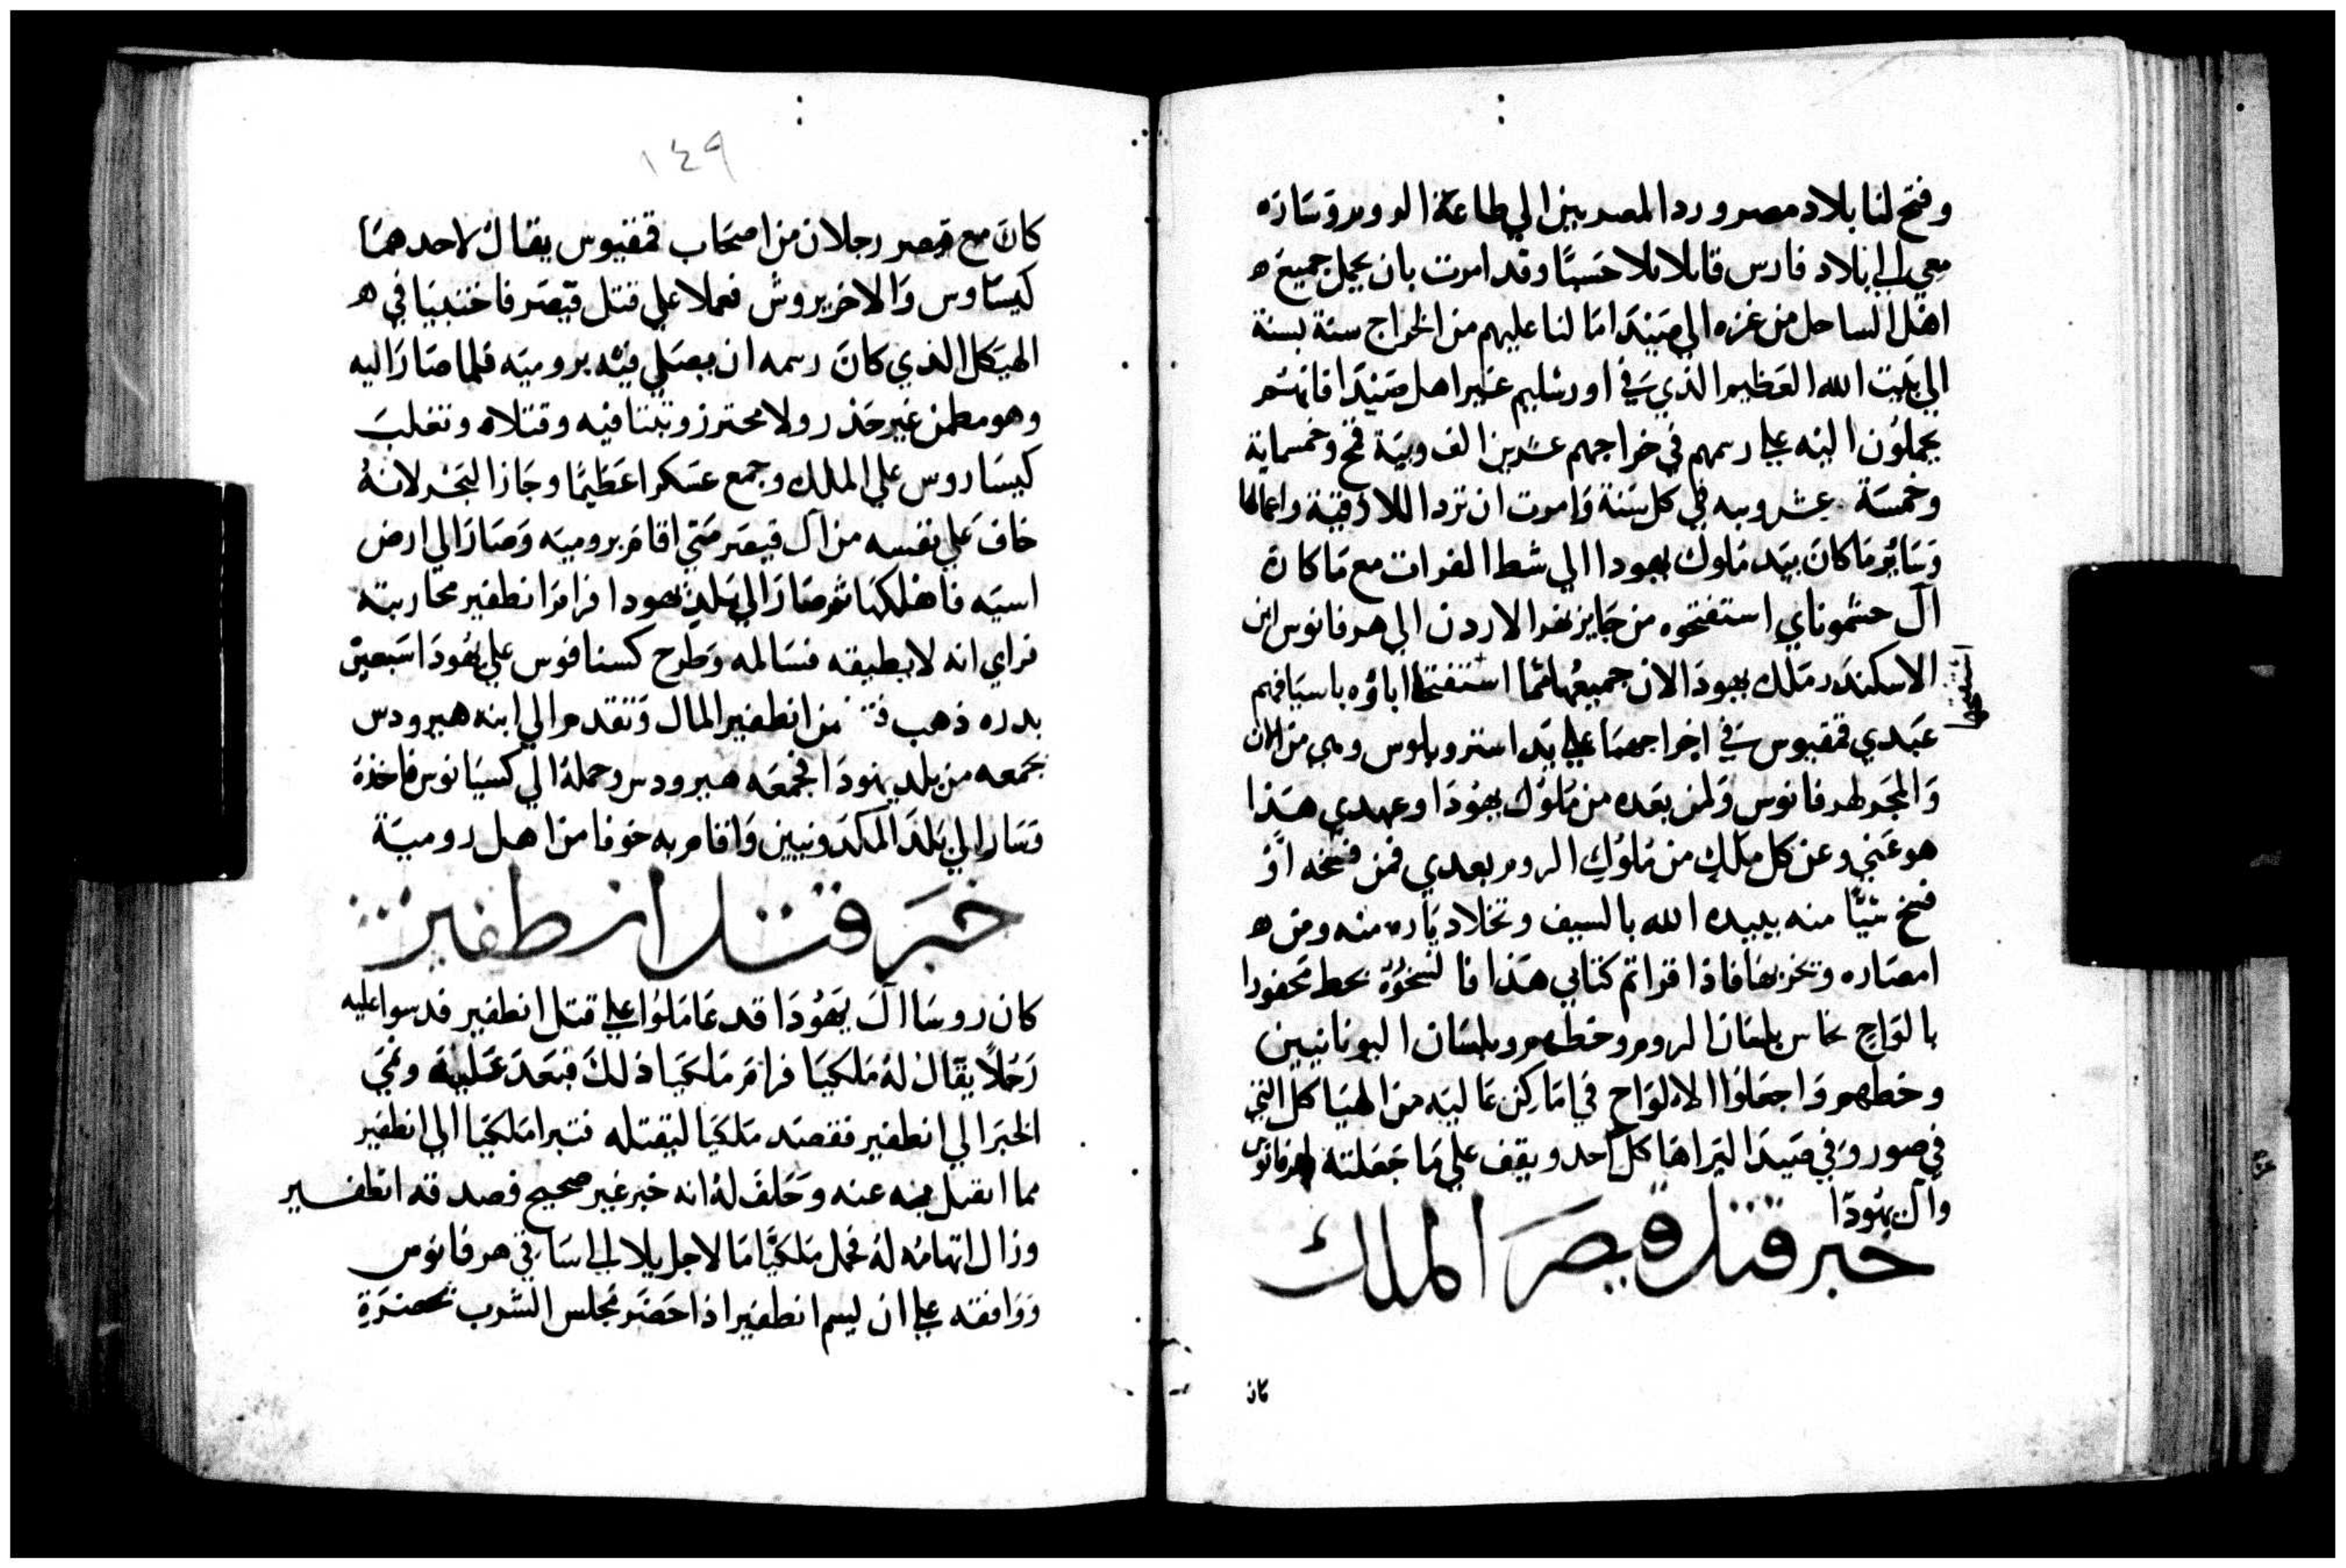 وفتح لنا بلاد مصر ورد المصريين الي طاعة الروم وساره
معي الي بلاد فارس قابلا بلا حسنًا وقد امرت بان يحمل جميع ه
اهل الساحل من غزه الي صيدا ما لنا عليهم من الخراج سنة بسنة
الي بيت الله العظيم الذي في اورشليم غير اهل صيدا فانهم
يحملون اليه علي رسمهم في خراجهم عشرين الف ويبة قمح وخمسماية
وخمسة عشر ويبه في كل سنة وامرت ان ترد اللاذقية واعمالها
وساير ما كان بيد ملوك يهودا الي شط الفرات مع ما كان
آل حشموناي استفتحوه من جايز نهر الاردن الي هرقانوس ابن
الاسكندر ملك يهودا لان جميعها مما استفتحها اباؤه باسيافهم
استفتحها
عبدي قمقيوس في اخراجها علي يد استروبلوس وهي من الان
والمجر لهرقانوس ولمن بعده من ملوك يهودا وعهدي هذا
هو عني وعن كل ملك من ملوك الروم بعدي فمن فسخه او
فسخ شيًا منه يبيده الله بالسيف وتخلا دياره منه ومن ه
امصاره وتخربها فاذا قراتم كتابي هذا فانسخوه بخط محفورا
بالواح نحاس بلسان الروم وخطهم وبلسان اليونانيين
وخطهم واجعلوا الالواح في اماكن عاليه من الهياكل التي
في صور وفي صيدا ليراها كل احد ويقف علي ما جعلته لهرقانوس
وآل يهودا
خبر قتل قيصر الملك
كان
١٤٩
كان مع قيصر رجلان من اصحاب قمقيوس يقال لاحدهما
كيساوس والاخر بروش فعملا علي قتل قيصر فاختبيا في ه
الهيكل الذي كان رسمه ان يصلي فيه بروميه فلما صار اليه
وهو مطمن غير حذر ولا محترز وثبتا فيه وقتلاه وتغلب
كيساروس علي الملك وجمع عسكرا عظيمًا وجاز البحر لانه
خاف علي نفسه من آل قيصر متي اقام بروميه وصار الي ارض
اسيه فاهلكها ثم صار الي بلد يهودا فرام انطفير محاربته
فراي انه لا يطيقه فسالمه وطرح كسنافوس علي يهودا سبعين
بدره ذهب من انطفير المال وتقدم الي ابنه هيرودس
بجمعه من بلد يهودا فجمعه هيرودس وحمله الي كسيانوس فاخذه
وسار الي بلد المكدونيين واقام به خوفا من اهل رومية
خبر قتل انطفير
كان روسا آل يهودا قد عاملوا علي قتل انطفير فدسوا عليه
رجلاً يقال له ملكيا فرام ملكيا ذلك فبعد عليه ونمي
الخبر الي انطفير فقصد ملكيا ليقتله فتبرا ملكيا الي انطفير
مما انقل عنه وحلف له انه خبر غير صحيح فصدقه انطفير
وزال اتهامه له فحمل ملكيا مالا جزيلا الي ساقي هرقانوس
ووافقه علي ان ليسم انطفير اذا حضر مجلس الشرب بحضرة